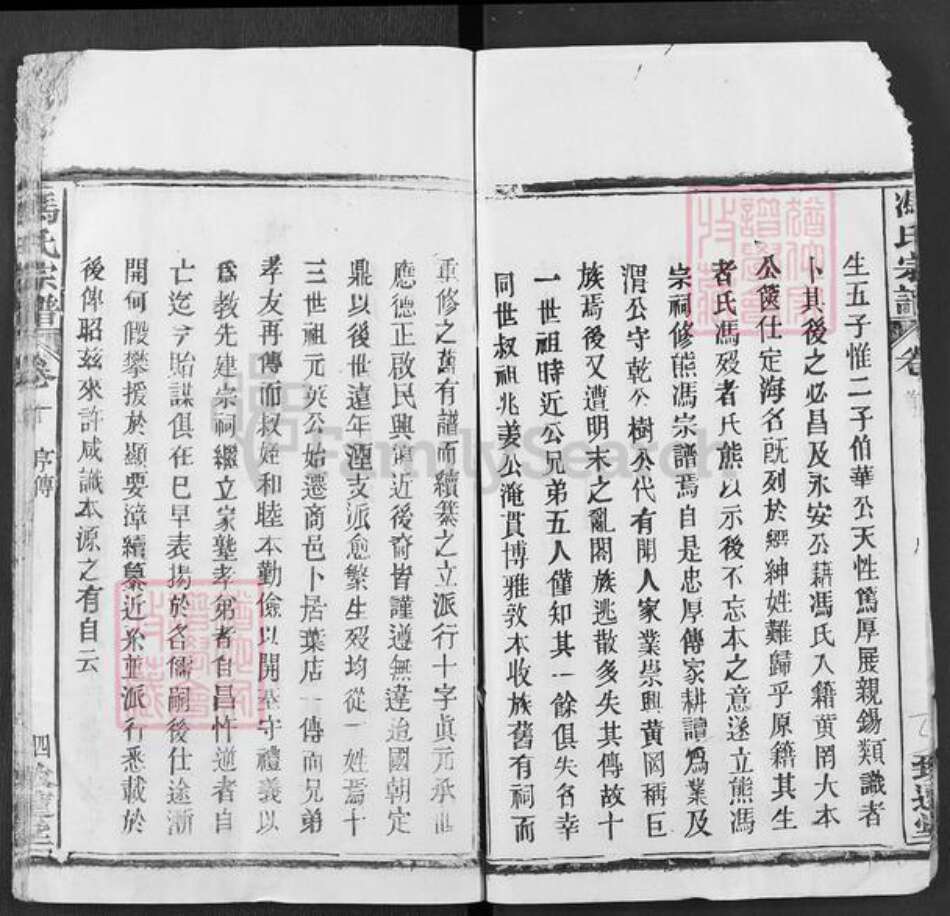 馮氏宗譜
卷
生五子惟二子伯華公天性篤厚展親錫類識者
卜其後之必昌及永安公藉馮氏入籍黄岡大本
公筮仕定海名既列於縉紳姓難歸乎原籍其生
者氏馮殁者氏熊以示後不忘本之意遂立熊馮
宗祠修熊馮宗譜焉自是忠厚傳家耕讀爲業及
渭公守乾公樹公代有聞人家業崇興黄岡稱巨
族焉後又遭明末之亂闔族逃散多失其傳故十
一世祖時近公兄弟五人僅知其一餘俱失名幸
同世叔祖兆姜公淹貫博雅敦本收族舊有祠而
重修之舊有譜而續纂之立派行十字眞元承
應德正啟民興近後裔皆謹遵無違迨國朝定
鼎以後世遠年湮支派愈繁生殁均從一姓焉十
三世祖元英公始遷商邑卜居葉店一傳而兄弟
孝友再傳而叔姪和睦本勤儉以開基守禮義以
爲教先建宗祠繼立家塾孝弟者自昌忤逆者自
亡迄今貽謀俱在已早表揚於各儒嗣後仕途漸
開何假攀援於顯要漳續纂近系並派行悉載於
後俾昭兹來許咸識本源之有自云
馮氏宗譜
卷十
序傳
四
FamilySearch